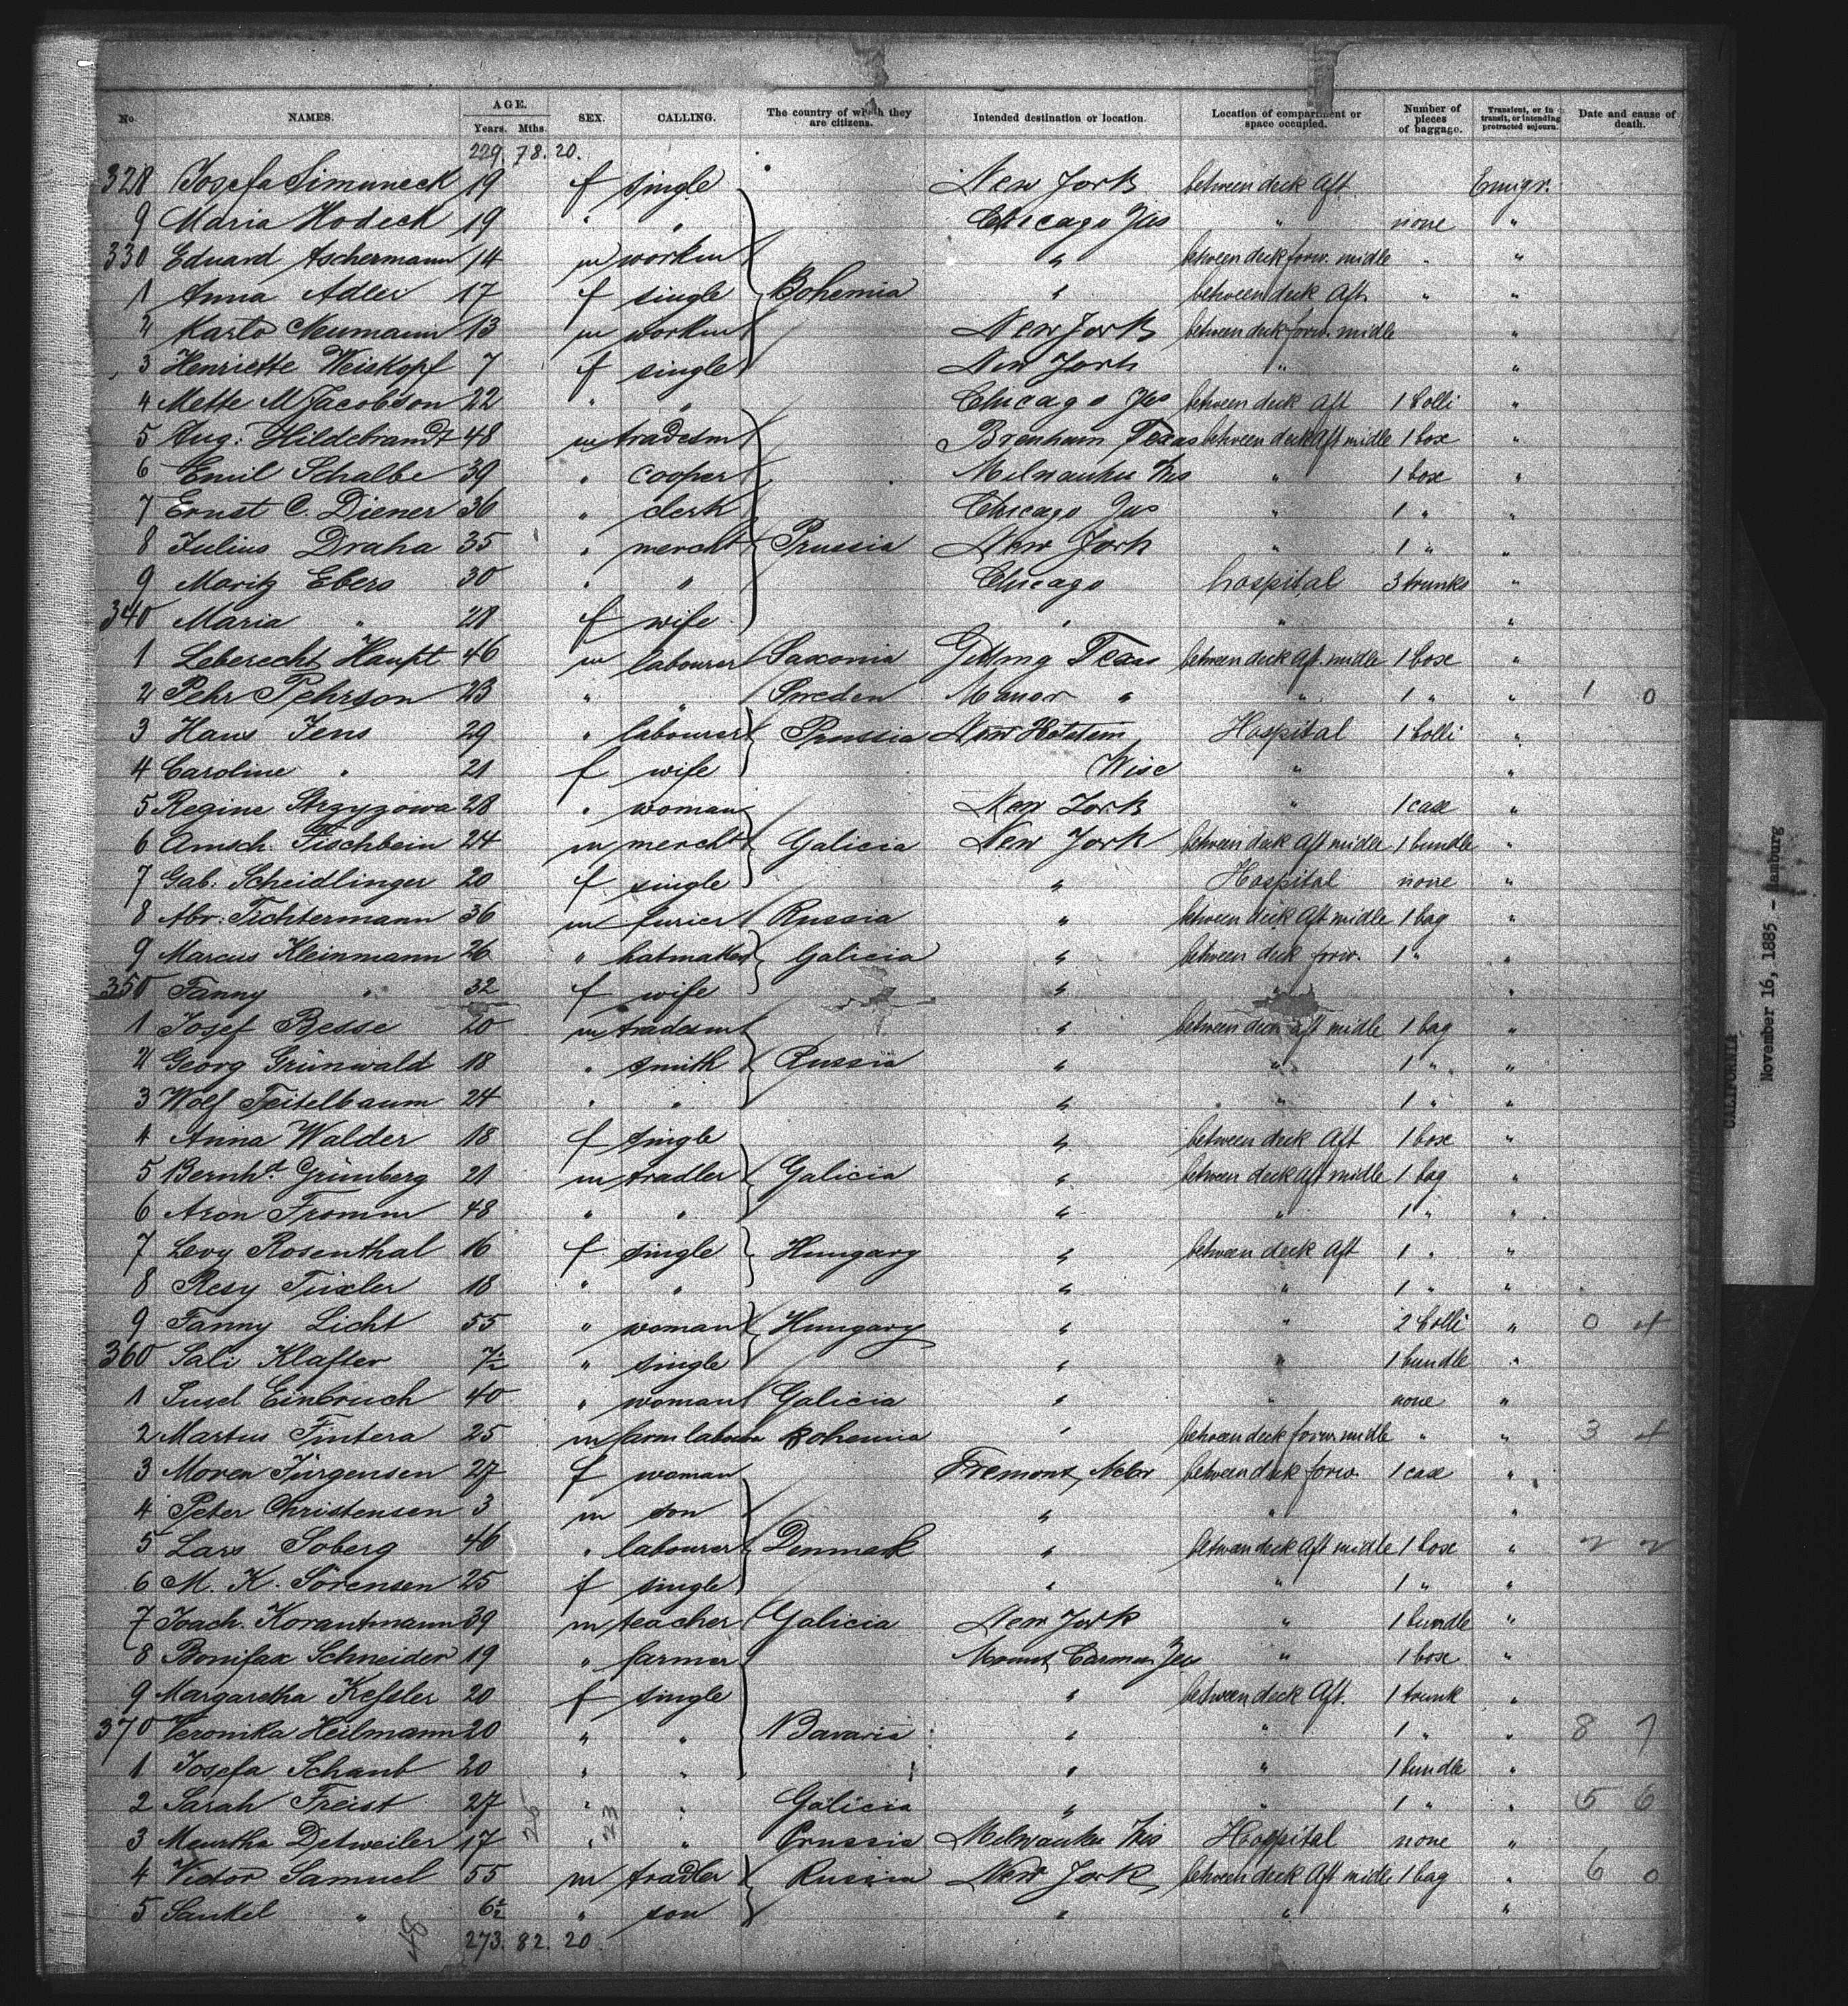 No. NAMES. AGE. Years. Mths. SEX. CALLING. The country of which they are citizens. Intended destination or location. Location of compartment or space occupied. Number of pieces of baggage. Transient, or in transit, or intending protracted sojourn. Date and cause of death.
229. 78. 20.
328 Josefa Simuneck 19 f single New York between deck Aft Emigr.
9 Maria Hodeck 19 " " Chicago Jlls " none "
330 Eduard Aschermann 14 m workm " between deck forw. midle " "
1 Anna Adler 17 f single Bohemia " between deck Aft " "
2 Karlo Neumann 13 m workm New York between deck forw. midle "
3 Henriette Weiskopf 7 f single New York " "
4 Mette M Jacobson 22 " " Chicago Jlls between deck Aft 1 Colli "
5 Aug: Hildebrandt 48 m tradesm Brenham, Texas between deck Aft midle 1 box "
6 Emil Schalbe 39 " cooper Milwaukee Wis " 1 box "
7 Ernst C. Diener 36 " clerk Chicago Jlls " 1 " "
8 Julius Draha 35 " mercht Prussia New York " 1 " "
9 Moritz Ebers 30 " " Chicago hospital 3 trunks "
340 Maria " 28 f wife " " "
1 Leberecht Haupt 46 m labourer Saxonia Texas between deck Aft. midle 1 box "
2 Pehr Pehrson 23 " " Sweden Manor " " 1 " " 1 0
3 Hans Jens 29 " labourer Prussia New Holstein Hospital 1 Colli "
4 Caroline " 21 f wife Wisc " "
5 Regine Strzyzowa 28 " woman New York " 1 case "
6 Amsch. Fischbein 24 m mercht Galicia New York between deck Aft midle 1 bundle "
7 Gab: Scheidlinger 20 f single " Hospital none "
8 Abr: Fichtermann 36 m furier Russia " between deck Aft midle 1 bag "
9 Marcus Kleinmann 26 " hatmaker Galicia " between deck forw. 1 " "
350 Fanny " 32 f wife " " "
1 Josef Besse 20 m tradesm " between deck aft midle 1 bag "
2 Georg Grünwald 18 " smith Russia " " 1 " "
3 Wolf Teitelbaum 24 " " " " 1 " "
4 Anna Walder 18 f single " between deck Aft 1 box "
5 Bernhd. Grünberg 21 m tradler Galicia " between deck Aft midle 1 bag "
6 Aron Fromm 48 " " " " 1 " "
7 Levy Rosenthal 16 f single Hungary " between deck Aft 1 " "
8 Resy Tixler 18 " " " " 1 " "
9 Fanny Licht 55 " woman Hungary " " 2 Colli " 0 4
360 Sali Klafter 7½ " single " " 1 bundle "
1 Susel Einbruch 40 " woman Galicia " " none "
2 Martus Fintera 25 m farmlabourer Bohemia " between deck forw. midle " " 3 4
3 Moren Jürgensen 27 f woman Fremont, Nebr between deck forw. 1 case "
4 Peter Christensen 3 m son " " "
5 Lars Soberg 46 " labourer Denmark " between deck Aft midle 1 box " 2 2
6 M. K. Sörensen 25 f single " " 1 " "
7 Joach. Korantmann 39 m teacher Galicia New York " 1 bundle "
8 Bonifax Schneider 19 " farmer Mount Carmen Jlls " 1 box "
9 Margaretha Keßler 20 f single " between deck Aft. 1 trunk "
370 Veronika Heilmann 20 " " Bavaria " " 1 " " 8 7
1 Josefa Schaub 20 " " " " 1 bundle "
2 Sarah Freist 27 " " Galicia " " 1 " " 5 6
3 Detweiler 17 " " Prussia Milwaukee Wis Hospital none "
4 Victor Samuel 55 m tradler Russia New York between deck Aft midle 1 bag " 6 0
5 Sankel " 6½ " son " " "
273. 82. 20.
CALIFORNIA
November 16, 1885 - Hamburg